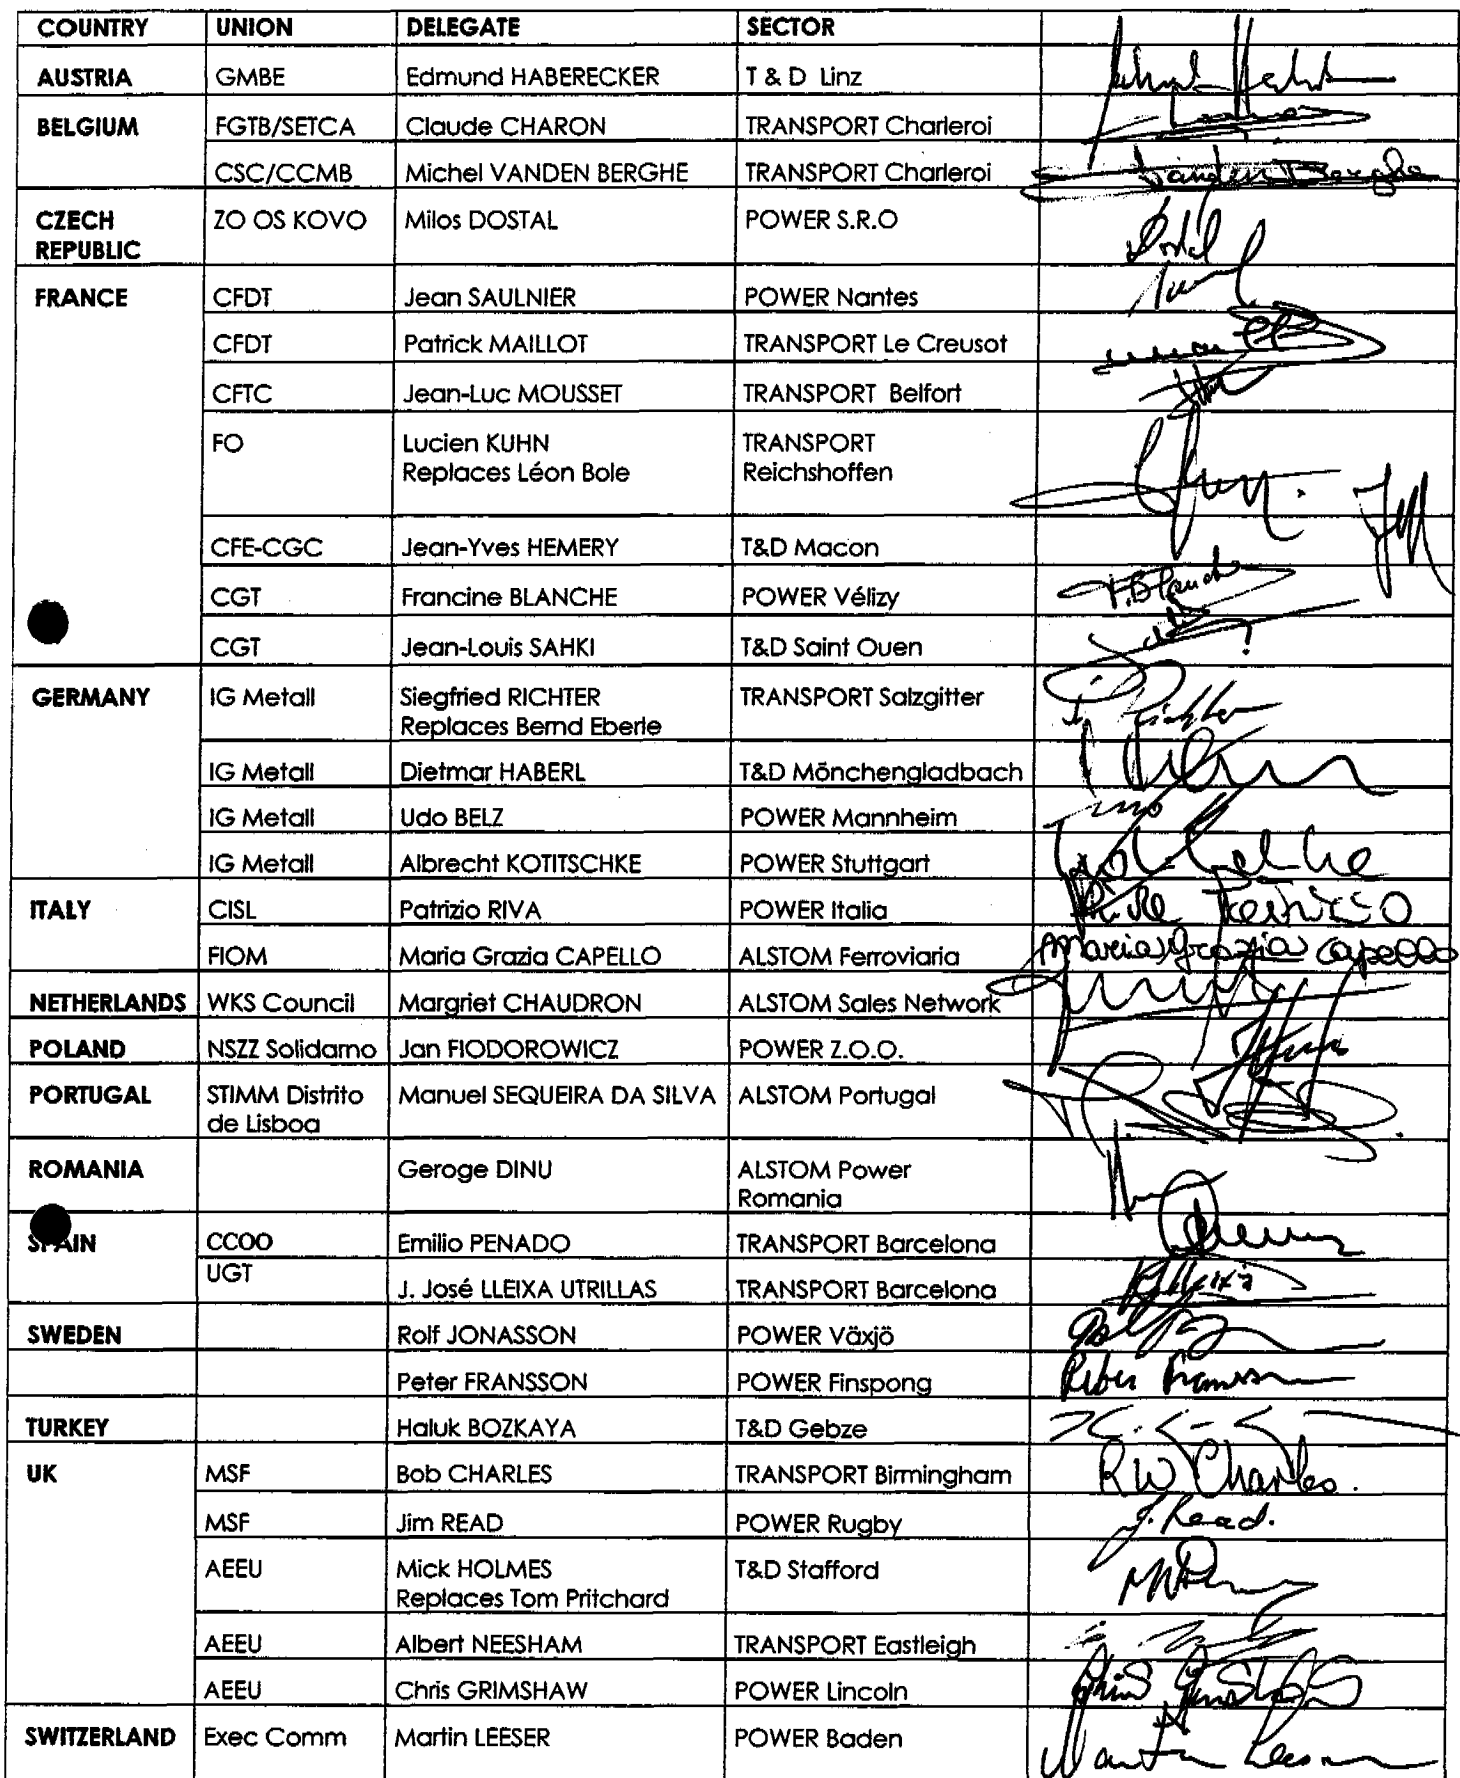 COUNTRY UNION DELEGATE SECTOR
AUSTRIA GMBE Edmund HABERECKER T & D Linz
BELGIUM FGTB/SETCA Claude CHARON TRANSPORT Charleroi
CSC/CCMB Michel VANDEN BERGHE TRANSPORT Charleroi Vanden Berghe
CZECH ZO OS KOVO Milos DOSTAL POWER S.R.O
REPUBLIC
FRANCE CFDT Jean SAULNIER POWER Nantes
CFDT Patrick MAILLOT TRANSPORT Le Creusot
CFTC Jean-Luc MOUSSET TRANSPORT Belfort
FO Lucien KUHN TRANSPORT
Replaces Léon Bole Reichshoffen
CFE-CGC Jean-Yves HEMERY T&D Macon
CGT Francine BLANCHE POWER Vélizy F.Blanche
CGT Jean-Louis SAHKI T&D Saint Ouen
GERMANY IG Metall Siegfried RICHTER TRANSPORT Salzgitter
Replaces Bernd Eberle
IG Metall Dietmar HABERL T&D Mönchengladbach
IG Metall Udo BELZ POWER Mannheim
IG Metall Albrecht KOTITSCHKE POWER Stuttgart
ITALY CISL Patrizio RIVA POWER Italia
FIOM Maria Grazia CAPELLO ALSTOM Ferroviaria Maria Grazia Capello
NETHERLANDS WKS Council Margriet CHAUDRON ALSTOM Sales Network
POLAND NSZZ Solidarno Jan FIODOROWICZ POWER Z.O.O.
PORTUGAL STIMM Distrito Manuel SEQUEIRA DA SILVA ALSTOM Portugal
de Lisboa
ROMANIA Geroge DINU ALSTOM Power
Romania
SPAIN CCOO Emilio PENADO TRANSPORT Barcelona
UGT J. José LLEIXA UTRILLAS TRANSPORT Barcelona
SWEDEN Rolf JONASSON POWER Växjö
Peter FRANSSON POWER Finspong Peter Fransson
TURKEY Haluk BOZKAYA T&D Gebze
UK MSF Bob CHARLES TRANSPORT Birmingham RW Charles.
MSF Jim READ POWER Rugby J. Read.
AEEU Mick HOLMES T&D Stafford
Replaces Tom Pritchard
AEEU Albert NEESHAM TRANSPORT Eastleigh
AEEU Chris GRIMSHAW POWER Lincoln
SWITZERLAND Exec Comm Martin LEESER POWER Baden Martin Leeser